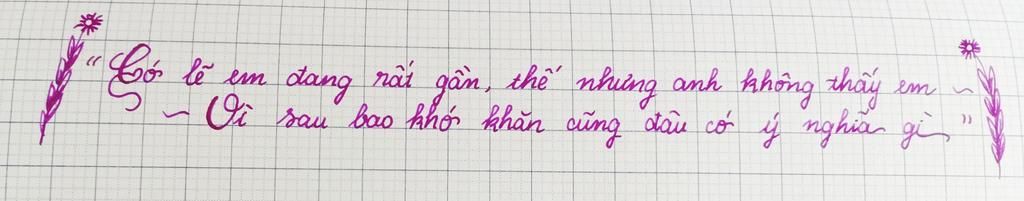 “Có lẽ em đang rất gần, thế nhưng anh không thấy em ~
~ Vì sau bao khó khăn cũng đâu có ý nghĩa gì”